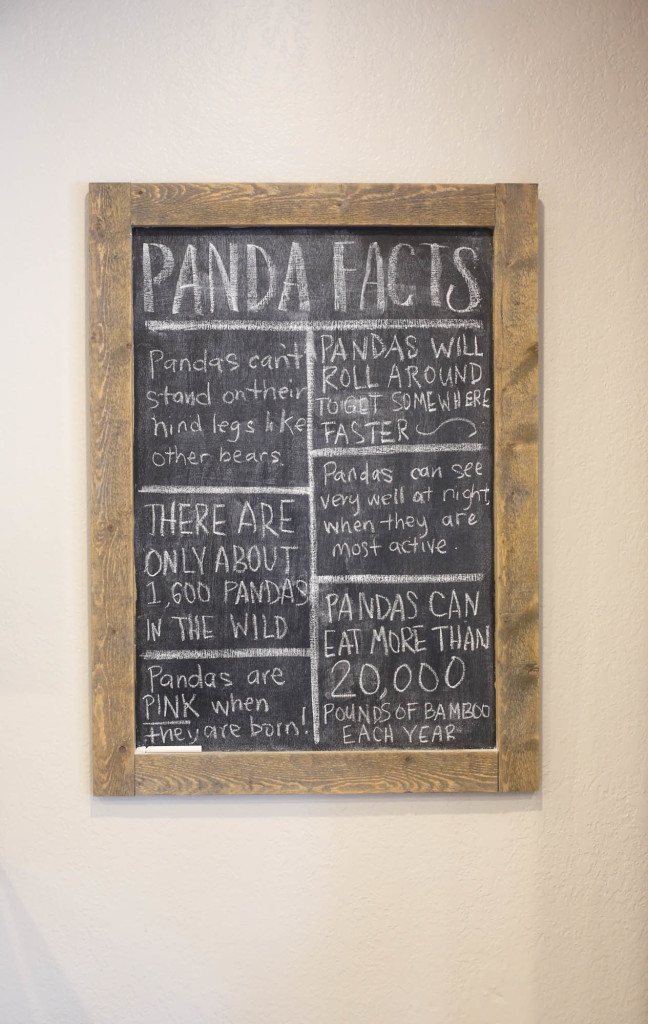 PANDA FACTS
Pandas can't
stand on their
hind legs like
other bears.
THERE ARE
ONLY ABOUT
1,600 PANDAS
IN THE WILD
Pandas are
PINK when
they are born!
PANDAS WILL
ROLL AROUND
TO GET SOMEWHERE
FASTER
Pandas can see
very well at night,
when they are
most active.
PANDAS CAN
EAT MORE THAN
20,000
POUNDS OF BAMBOO
EACH YEAR